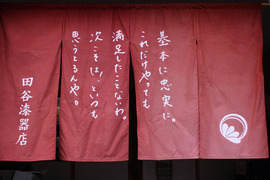 基本に忠実に。
これだけやっても
満足したことないわ。
次こそは!といつも
思うとるんや。
田谷漆器店